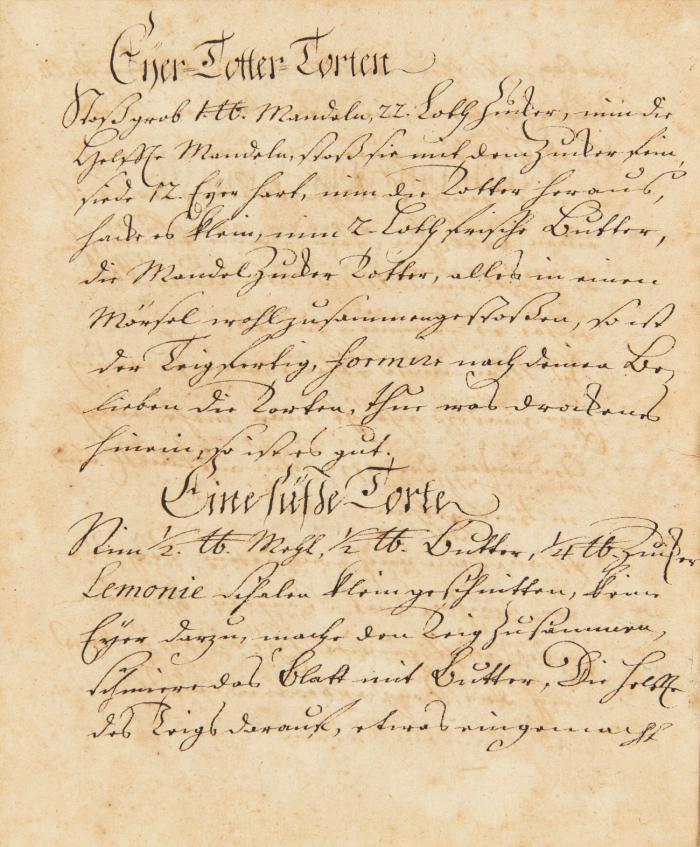 Eyer-Totter-Torten
Stoß grob 1. ℔. Mandeln, 22. Loth Zucker, nim die
Helffte Mandeln, stoß sie mit dem Zucker fein,
siede 12. Eyer hart, nim die Totter heraus,
hacke es klein, nim 2. Loth frische Butter,
die Mandel Zucker Totter, alles in einen
Mörsel wohl zusammengestoßen, so ist
der Teig fertig, formire nach deinen Be-
lieben die Torten, thue was drockenes
hinein, so ist es gut.
Eine süsse Torte
Nim ½. ℔. Mehl, ½ ℔. Butter, ¼ ℔. Zucker
Lemonie schalen klein geschnitten, keine
Eyer darzu, mache den Teig zusammen,
schmiere das Blatt mit Butter, Die helffte
des Teigs darauf, etwas eingemacht